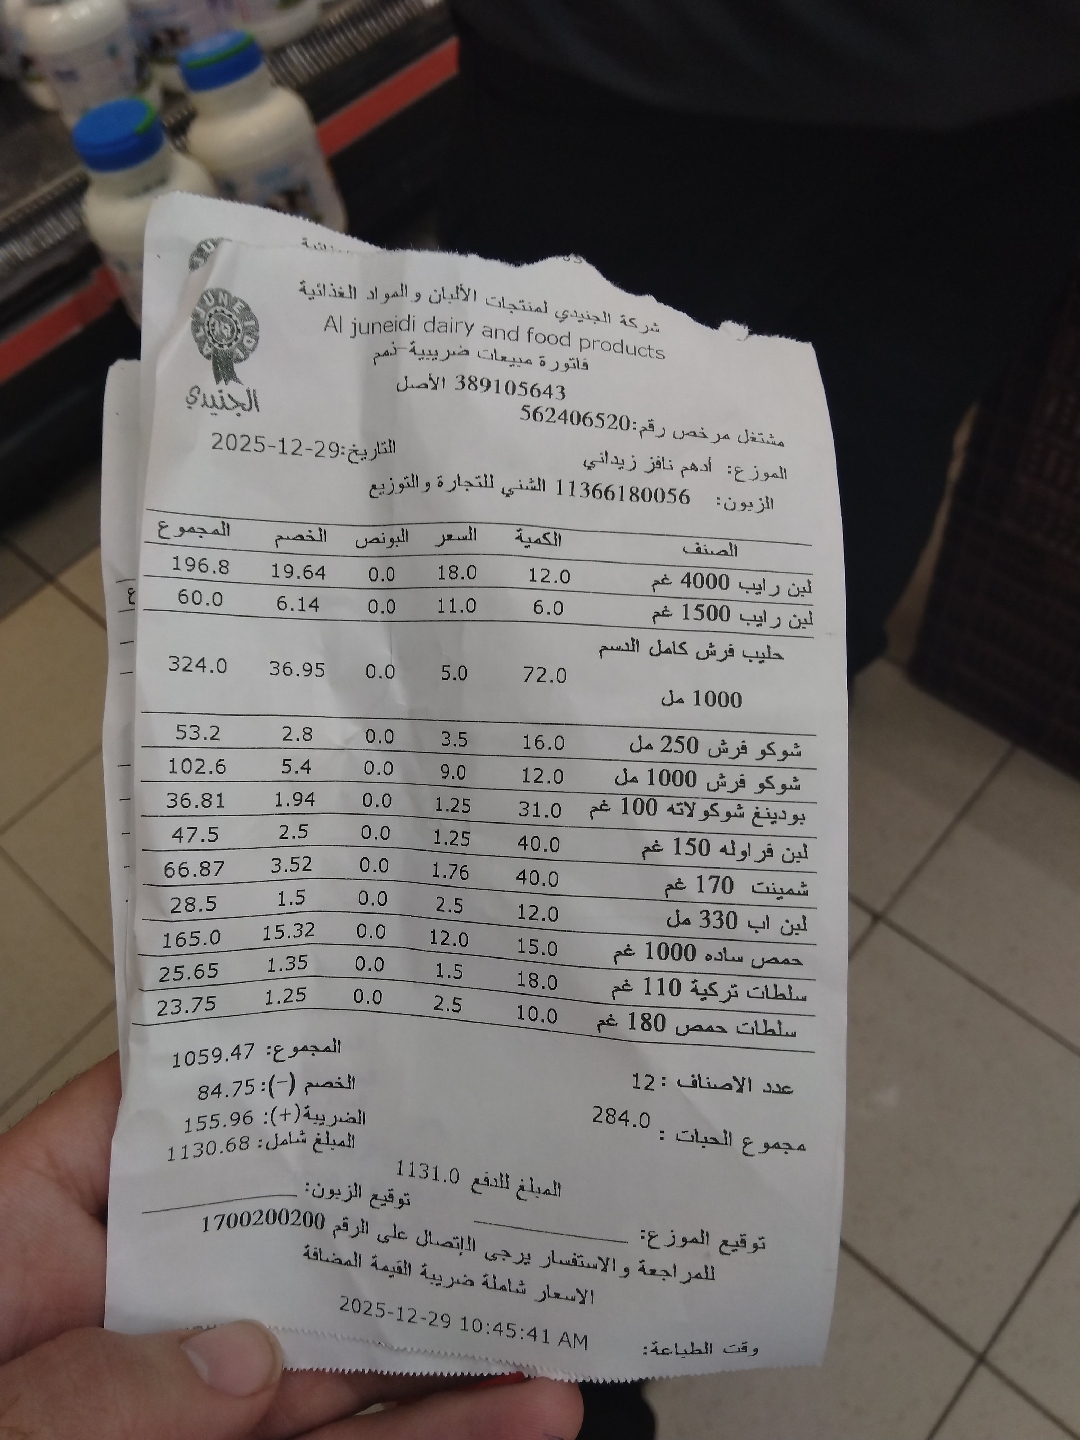 شركة الجنيدي لمنتجات الألبان والمواد الغذائية
Al juneidi dairy and food products
فاتورة مبيعات ضريبية-ذمم
389105643 الأصل
مشتغل مرخص رقم:562406520
الجنيدي
التاريخ:2025-12-29
الموزع: أدهم نافز زيداني
الزبون: 11366180056 الشني للتجارة والتوزيع
الصنف الكمية السعر البونص الخصم المجموع
لبن رايب 4000 غم 12.0 18.0 0.0 19.64 196.8
لبن رايب 1500 غم 6.0 11.0 0.0 6.14 60.0
حليب فرش كامل الدسم
1000 مل 72.0 5.0 0.0 36.95 324.0
شوكو فرش 250 مل 16.0 3.5 0.0 2.8 53.2
شوكو فرش 1000 مل 12.0 9.0 0.0 5.4 102.6
بودينغ شوكولاته 100 غم 31.0 1.25 0.0 1.94 36.81
لبن فراوله 150 غم 40.0 1.25 0.0 2.5 47.5
شمينت 170 غم 40.0 1.76 0.0 3.52 66.87
لبن اب 330 مل 12.0 2.5 0.0 1.5 28.5
حمص ساده 1000 غم 15.0 12.0 0.0 15.32 165.0
سلطات تركية 110 غم 18.0 1.5 0.0 1.35 25.65
سلطات حمص 180 غم 10.0 2.5 0.0 1.25 23.75
المجموع: 1059.47
عدد الاصناف : 12
الخصم (-): 84.75
الضريبة(+): 155.96
مجموع الحبات : 284.0
المبلغ شامل: 1130.68
المبلغ للدفع 1131.0
توقيع الزبون:
توقيع الموزع:
للمراجعة والاستفسار يرجى الإتصال على الرقم 1700200200
الاسعار شاملة ضريبة القيمة المضافة
وقت الطباعة: 2025-12-29 10:45:41 AM